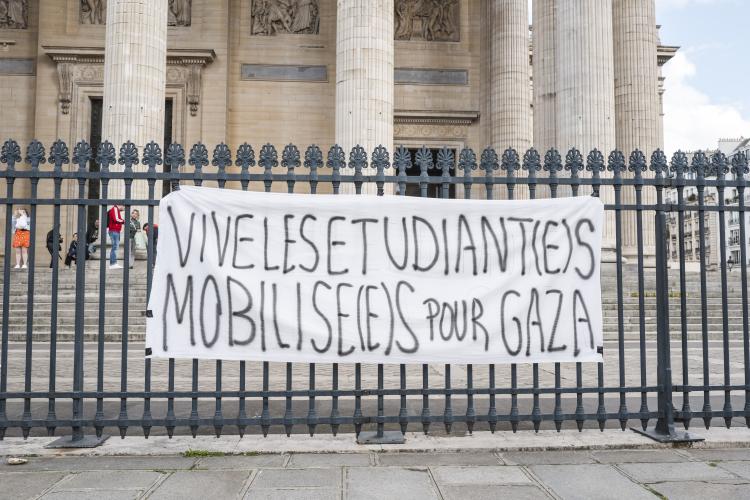 VIVE LES ETUDIANT(E)S
MOBILISE(E)S POUR GAZA